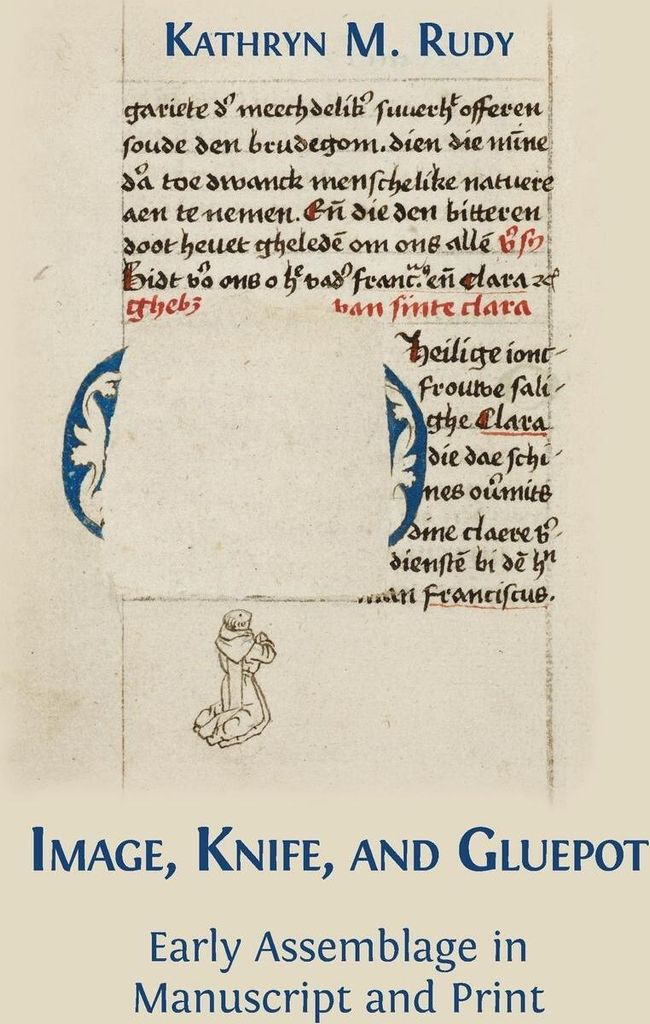 KATHRYN M. RUDY
gariete dʼ meechdelikʼ suuerhᵗ offeren
soude den brudegom. dien die mīne
dʼa toe dwanck menschelike natuere
aen te nemen. Eñ die den bitteren
doot heuet gheledē om ons allē
Bidt vʼo ons o hᵉ vadʼ franc. eñ Clara
ghebꝫ van sinte clara
Heilige ionc-
frouwe sali-
ghe Clara
die dae schi-
nes oūmits
dine claere vʼ-
dienstē bi dē hⁿ
Franciscus.
IMAGE, KNIFE, AND GLUEPOT
Early Assemblage in
Manuscript and Print